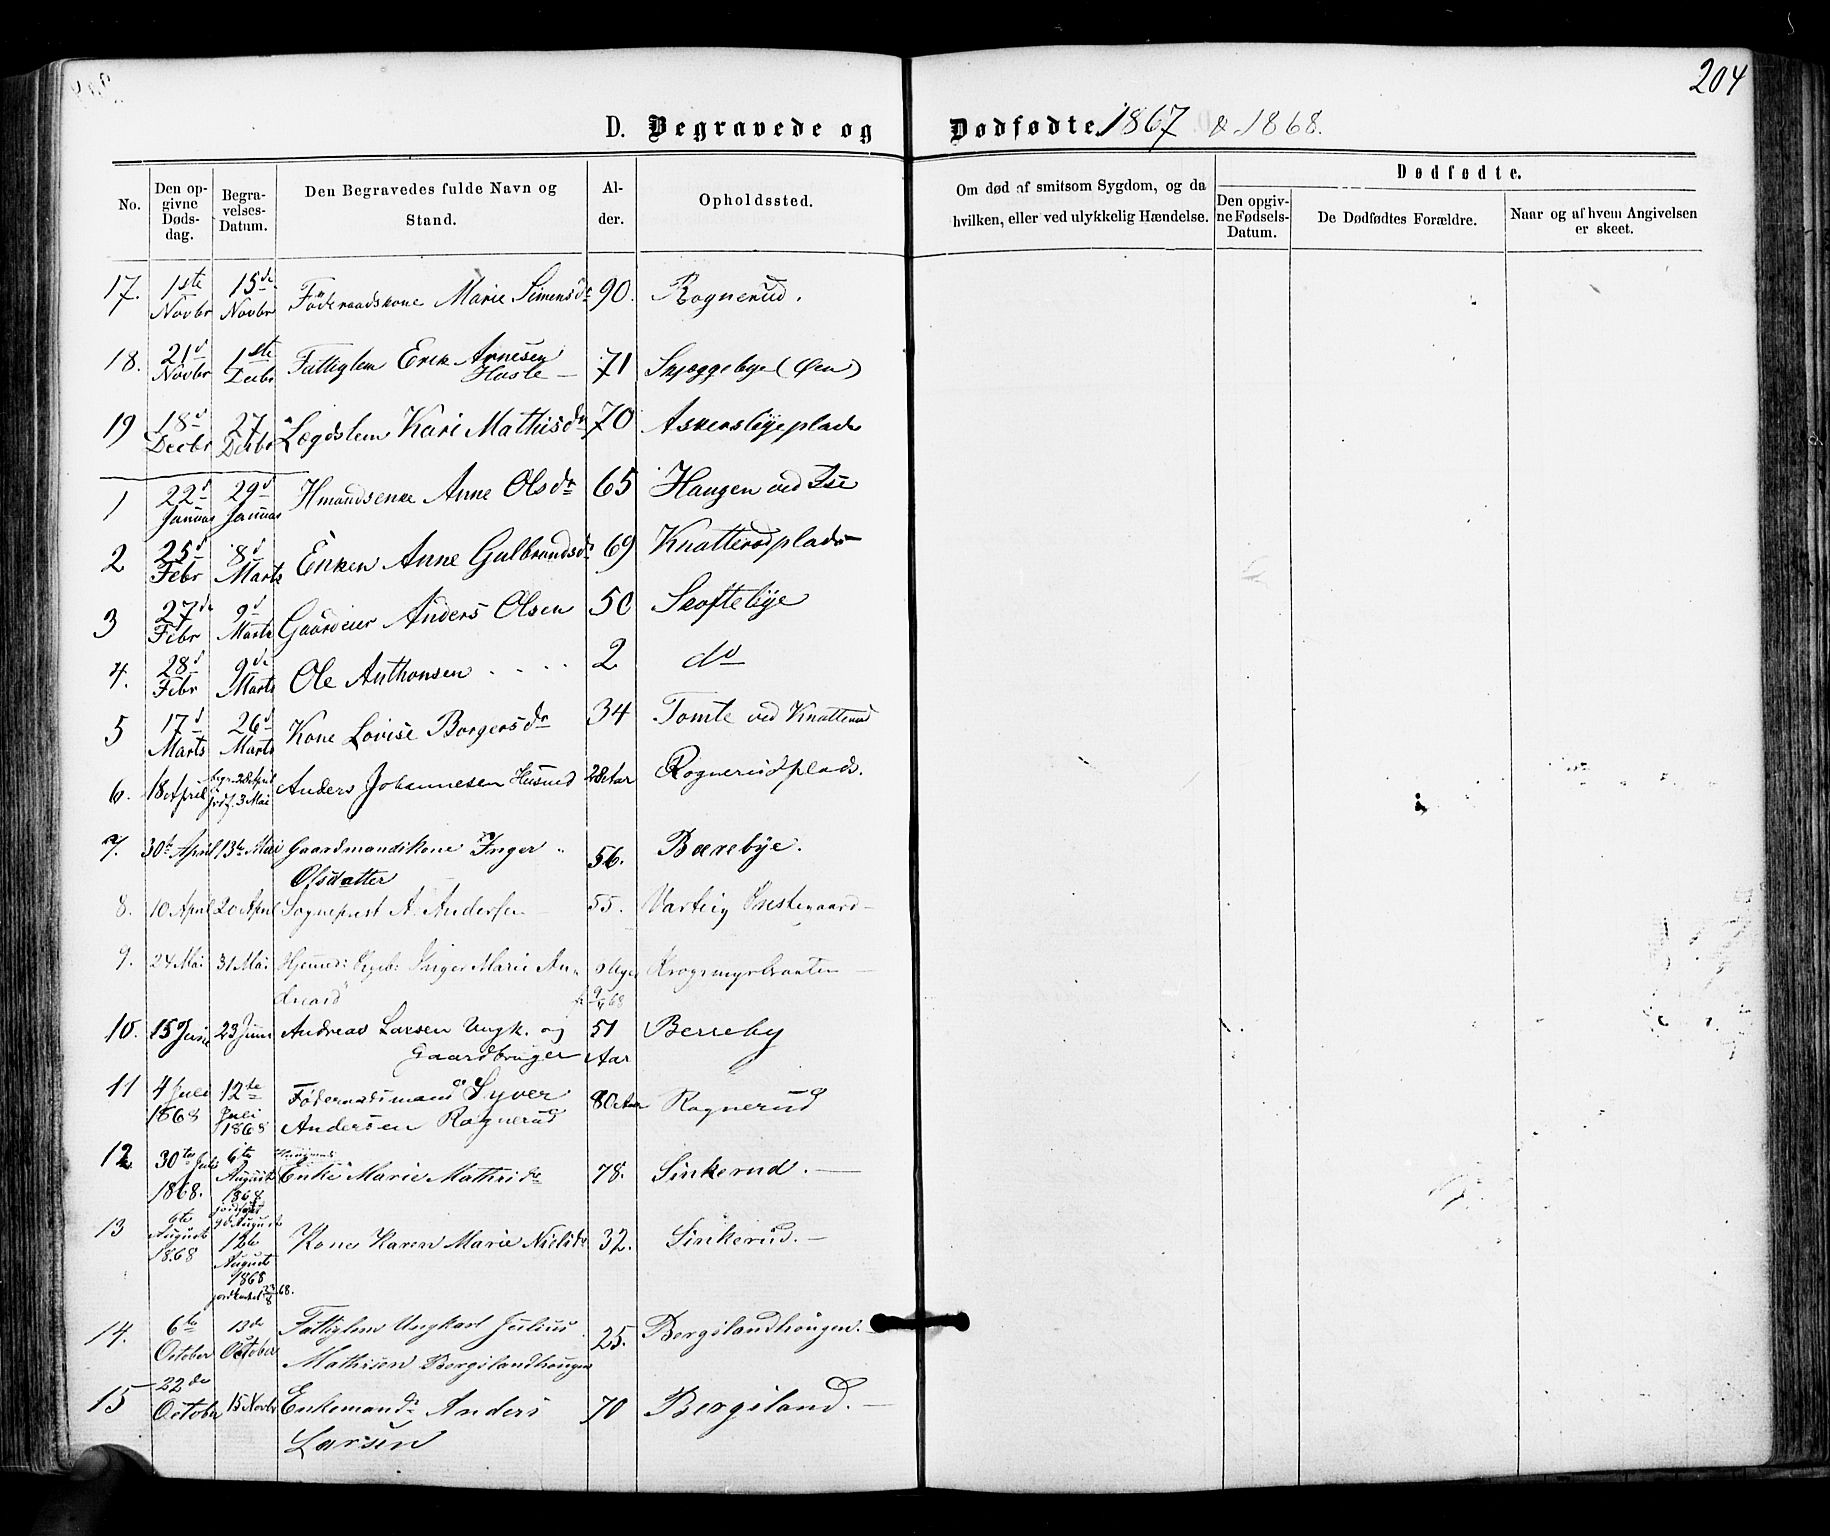 204
D. Begravede og Dødfødte. 1867 & 1868.
No.
Den opgivne Dødsdag.
Begravelses-Datum.
Den Begravedes fulde Navn og Stand.
Alder.
Opholdssted.
Om død af smitsom Sygdom, og da hvilken, eller ved ulykkelig Hændelse.
Dødfødte.
Den opgivne Fødsels-Datum.
De Dødfødtes Forældre.
Naar og af hvem Angivelsen er skeet.
17. 1ste Novbr 15de Novbr Föderaadskone Marie Simensdr 90. Rognerud.
18. 21d Novbr 1ste Decbr Fattiglem Erik Arnesen Hasle — 71 Skjeggebye (Øen)
19 18d Decbr 27 Decbr Lægdslem Kari Mathisdr 70 Askersbyeplads
1 22d Januar 29d Januar Hmandsenke Anne Olsdr 65 Haugen ved Ise
2 25d Febr 8d Marts Enken Anne Gulbrandsdr 69 Knatterødplads
3 27de Febr 9d Marts Gaardeier Anders Olsen 50 Skoftebye
4. 28d Febr 9de Marts Ole Anthonsen 2 do
5 17d Marts 26d Marts Kone Lovise Borgersdr 34 Tomte ved Knatterød
6. 18 April begr. 28 April jordf. 3 Mai Anders Johannesen Husmd 28 Aar Rognerudplads.
7. 30te April 13te Mai Gaardmandskone Inger Olsdatter 56. Bærebye.
8. 10 April 20 April Sognepræst A. Andersen 55. Varteig Præstegaard
9. 24 Mai 31 Mai Inger Marie Andreasd Krogsmyrbraaten
10. 15 Juni 23 Juni Andreas Larsen Ungk. og Gaardbruger 51 Aar Berreby
11 4 Juli 1868 12te Juli 1868 Föderaadsmand Syver Andersen Rognerud 80 Aar Rognerud
12 30te Juli 1868. 6te August 1868 Enke Marie Mathisdr 78. Sinkerud. —
13 6te August 1868 12te August 1868 Kone Karen Marie Nielsdr 32. Sinkerud. —
14. 6te October 13de October Fattiglem Ungkarl Julius Mathisen Bergslandhougen 25. Bergslandhougen. —
15 22de October 15 Novbr Enkemand Anders Larsen 70 Bergsland. —